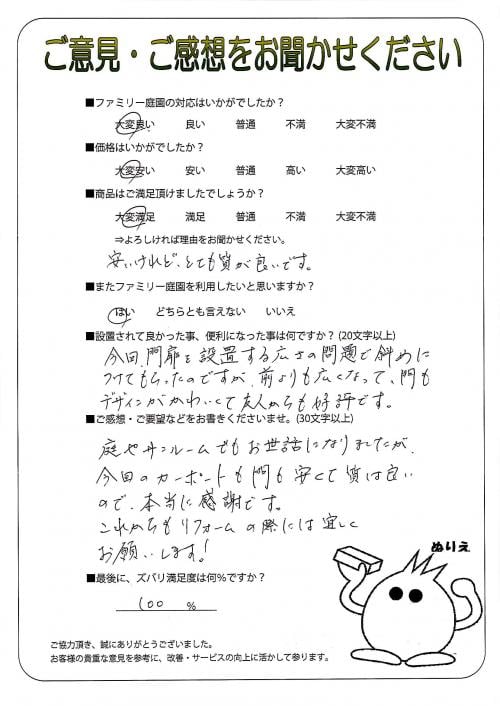 ご意見・ご感想をお聞かせください
■ファミリー庭園の対応はいかがでしたか？
大変良い 良い 普通 不満 大変不満
■価格はいかがでしたか？
大変安い 安い 普通 高い 大変高い
■商品はご満足頂けましたでしょうか？
大変満足 満足 普通 不満 大変不満
⇒よろしければ理由をお聞かせください。
安いけれど、とても質が良いです。
■またファミリー庭園を利用したいと思いますか？
はい どちらとも言えない いいえ
■設置されて良かった事、便利になった事は何ですか？(20文字以上)
今回、門扉を設置する広さの問題で斜めに
つけてもらったのですが、前よりも広くなって、門も
デザインがかわいくて友人からも好評です。
■ご感想・ご要望などをお書きくださいませ。(30文字以上)
庭やサンルームでもお世話になりましたが、
今回のカーポートも門も安くて質は良い
ので、本当に感謝です。
これからもリフォームの際には宜しく
お願いします！
■最後に、ズバリ満足度は何％ですか？
100 ％
ぬりえ
ご協力頂き、誠にありがとうございました。
お客様の貴重な意見を参考に、改善・サービスの向上に活かして参ります。